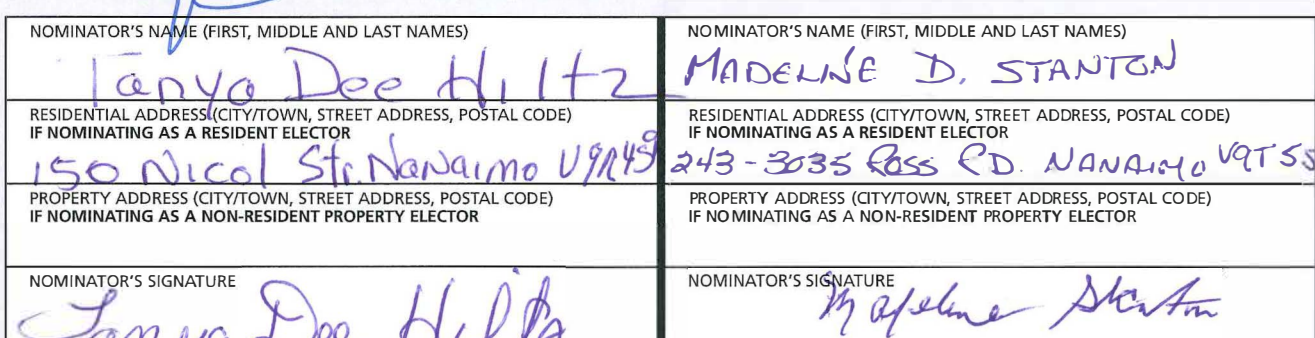 NOMINATOR'S NAME (FIRST, MIDDLE AND LAST NAMES)
Tanya Dee Hiltz
RESIDENTIAL ADDRESS (CITY/TOWN, STREET ADDRESS, POSTAL CODE)
IF NOMINATING AS A RESIDENT ELECTOR
150 Nicol Str. Nanaimo
PROPERTY ADDRESS (CITY/TOWN, STREET ADDRESS, POSTAL CODE)
IF NOMINATING AS A NON-RESIDENT PROPERTY ELECTOR
NOMINATOR'S SIGNATURE
Tanya Dee Hiltz
NOMINATOR'S NAME (FIRST, MIDDLE AND LAST NAMES)
MADELINE D. STANTON
RESIDENTIAL ADDRESS (CITY/TOWN, STREET ADDRESS, POSTAL CODE)
IF NOMINATING AS A RESIDENT ELECTOR
243-3035 ROSS RD. NANAIMO V9T5S
PROPERTY ADDRESS (CITY/TOWN, STREET ADDRESS, POSTAL CODE)
IF NOMINATING AS A NON-RESIDENT PROPERTY ELECTOR
NOMINATOR'S SIGNATURE
Madeline Stanton